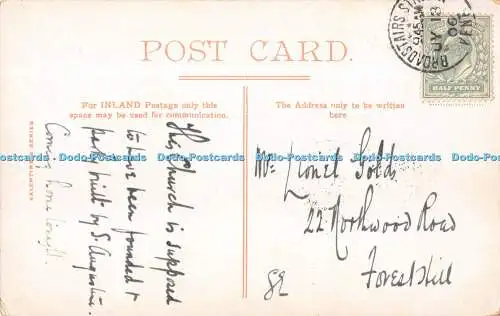 POST CARD.
For INLAND Postage only this
space may be used for communication.
The Address only to be written
here
BROADSTAIRS S
945AM
JY 13
06
KENT
HALF PENNY
This Church is supposed
to have been founded &
part built by St. Augustine.
Coming home tonight.
Mr. Lionel
22 Northwood Road
Forest Hill
SE
Dodo-Postcards Dodo-Postcards Dodo-Postcards Dodo-Postcards Dodo-Postcards Dodo-Postcards